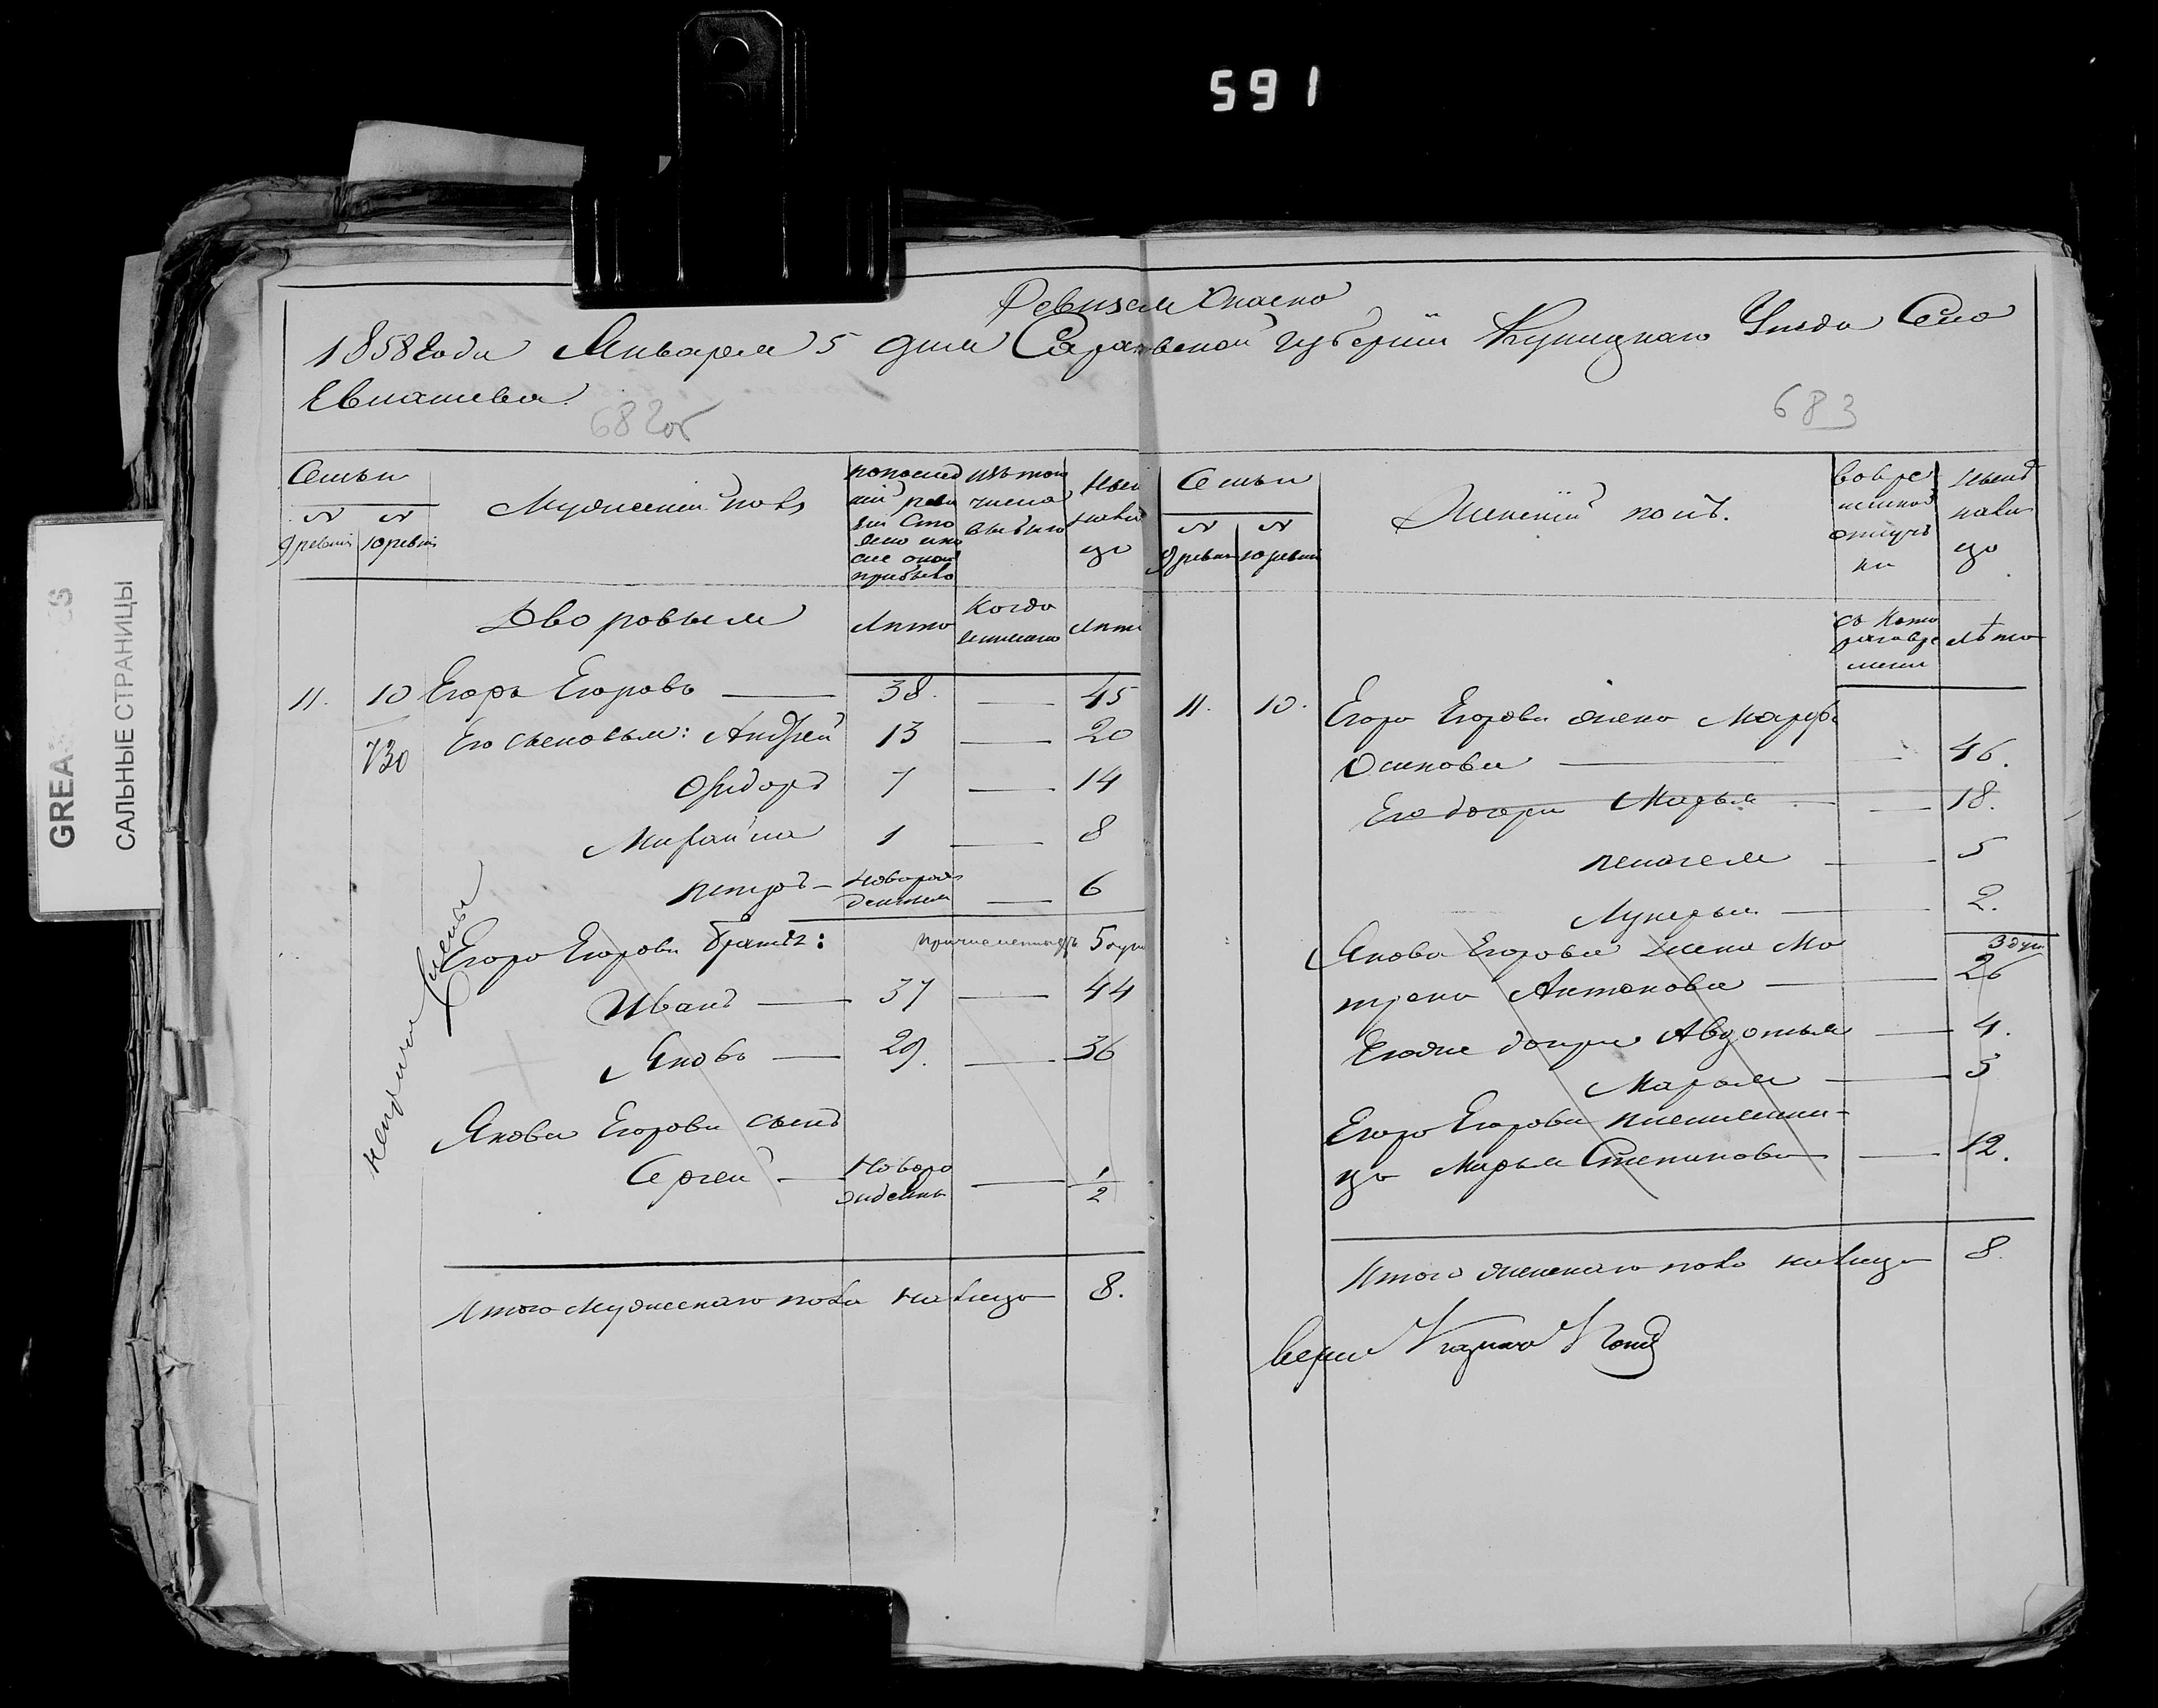 591
GREASY PAGES
САЛЬНЫЕ СТРАНИЦЫ
Ревизская Сказка
1858 Года Января 5 дня Саратовской губернии Кузнецкаго Уезда Село
Евлашева
682об
683
Семьи
№ 9 ревизіи
№ 10 ревизіи
Мужескій полъ
по послед
ней реви
зіи Сто
яло или
после оной
прибыло
Изъ того
числа
выбыло
Ныне
на ли
цо
Дворовыя
Лета
Когда
именно
Лета
11. 10 Егоръ Егоровъ 38. 45
730
Его Сыновья: Андрей 13 20
Сидоръ 7 14
Михайла 1 8
Петръ новорож
денный 6
Причисленныхъ 5 душ
Егора Егорова братья:
Иванъ 37 44
Яковъ 29. 36
Якова Егорова сынъ
Сергей Новоро
жденны 1/2
Итого Мужескаго пола на лицо 8.
Семьи
№ 9 ревизіи
№ 10 ревизіи
Женскій полъ.
во вре
менной
отлуч
ки
Ныне
на ли
цо
съ Кото
раго вре
мени
Лета
11. 10. Егора Егорова жена Марфа
Осипова 46.
Его дочери Марья 18.
Пелагея 5
Лукерья 2.
3 душ
Якова Егорова жена Ма
трена Антонова 26
Его же дочери Авдотья 4.
Марья 3
Егора Егорова племянни-
ца Марья Степанова 12.
Итого женскаго пола на лицо 8.